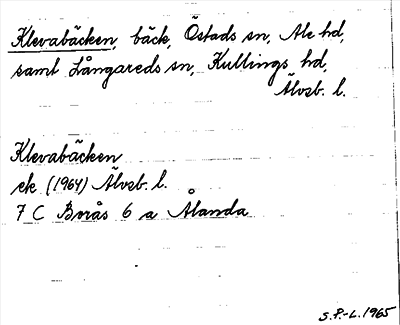 Klevabäcken, bäck, Östads sn, Ale hd,
samt Långareds sn, Kullings hd,
Älvsb. l.
Klevabäcken
ek (1964) Älvsb. l.
7 C Borås 6 a Ålanda
S.P.-L. 1965